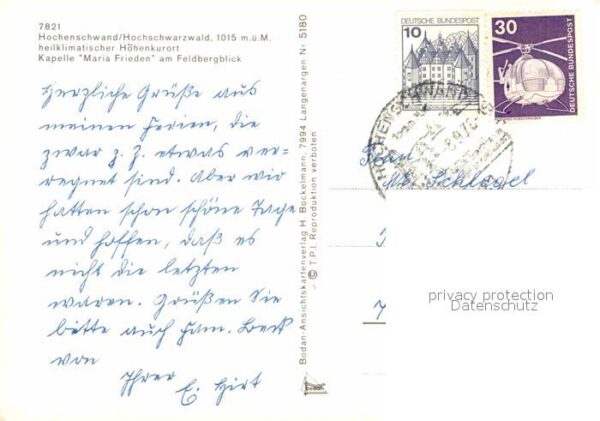 7821
Höchenschwand/Hochschwarzwald, 1015 m.ü.M.
heilklimatischer Höhenkurort
Kapelle "Maria Frieden" am Feldbergblick
Herzliche Grüße aus
meinen Ferien, die
zwar z. Z. etwas ver-
regnet sind. Aber wir
hatten schon schöne Tage
und hoffen, daß es
nicht die letzten
waren. Grüßen Sie
bitte auch Fam. Beck
von
Ihrer
E. Hirt
Bodan-Ansichtskartenverlag H. Bockelmann, 7994 Langenargen Nr. 5180
© T.P.I. Reproduktion verboten
BODAN
10
DEUTSCHE BUNDESPOST
30
DEUTSCHE BUNDESPOST
HÖCHENSCHWAND
Frau
M. Schlagel
privacy protection
Datenschutz